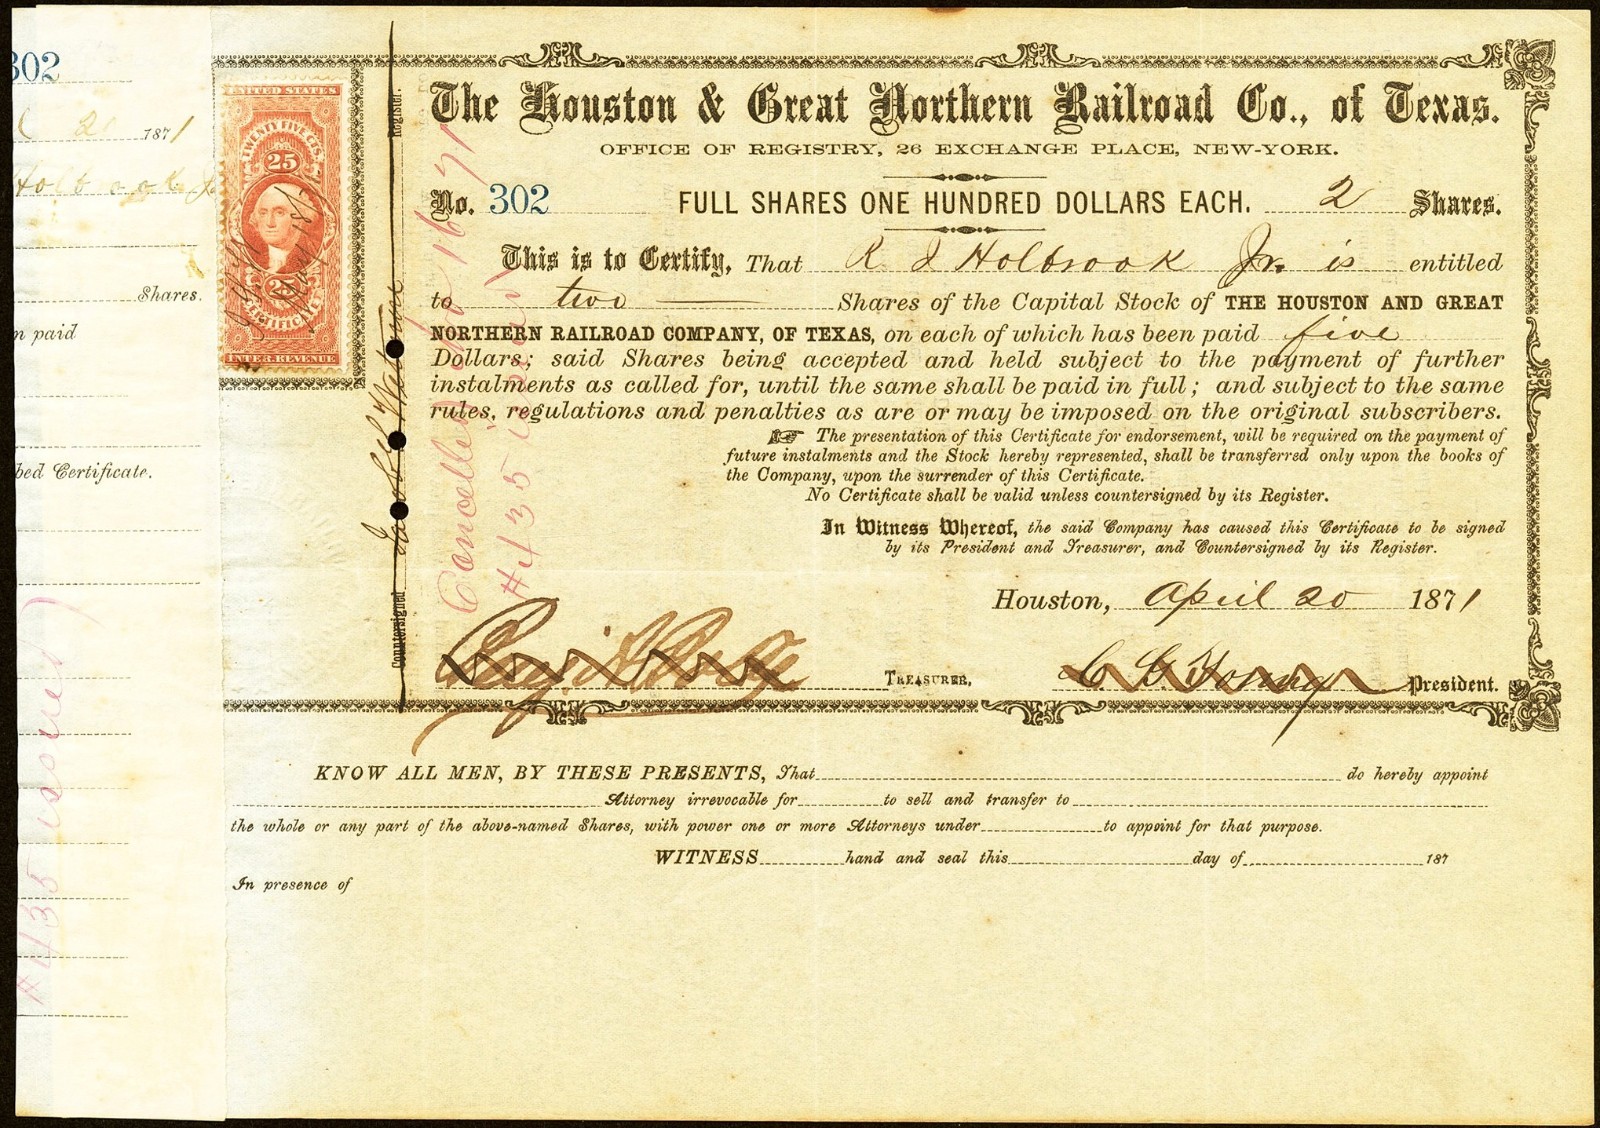 302
1871
Holbrook Jr
Shares.
n paid
bed Certificate.
#435 issued
UNITED STATES
TWENTY FIVE CTS.
25
25
CERTIFICATE
INTER. REVENUE
Countersigned
Register.
Cancelled
#435 issued
The Houston & Great Northern Railroad Co., of Texas.
OFFICE OF REGISTRY, 26 EXCHANGE PLACE, NEW-YORK.
No. 302 FULL SHARES ONE HUNDRED DOLLARS EACH. 2 Shares.
This is to Certify, That R I Holbrook Jr. is entitled
to two Shares of the Capital Stock of THE HOUSTON AND GREAT
NORTHERN RAILROAD COMPANY, OF TEXAS, on each of which has been paid five
Dollars; said Shares being accepted and held subject to the payment of further
instalments as called for, until the same shall be paid in full; and subject to the same
rules, regulations and penalties as are or may be imposed on the original subscribers.
☞ The presentation of this Certificate for endorsement, will be required on the payment of
future instalments and the Stock hereby represented, shall be transferred only upon the books of
the Company, upon the surrender of this Certificate.
No Certificate shall be valid unless countersigned by its Register.
In Witness Whereof, the said Company has caused this Certificate to be signed
by its President and Treasurer, and Countersigned by its Register.
Houston, April 20 1871
TREASURER, President.
KNOW ALL MEN, BY THESE PRESENTS, That do hereby appoint
Attorney irrevocable for to sell and transfer to
the whole or any part of the above-named Shares, with power one or more Attorneys under to appoint for that purpose.
WITNESS hand and seal this day of 187
In presence of